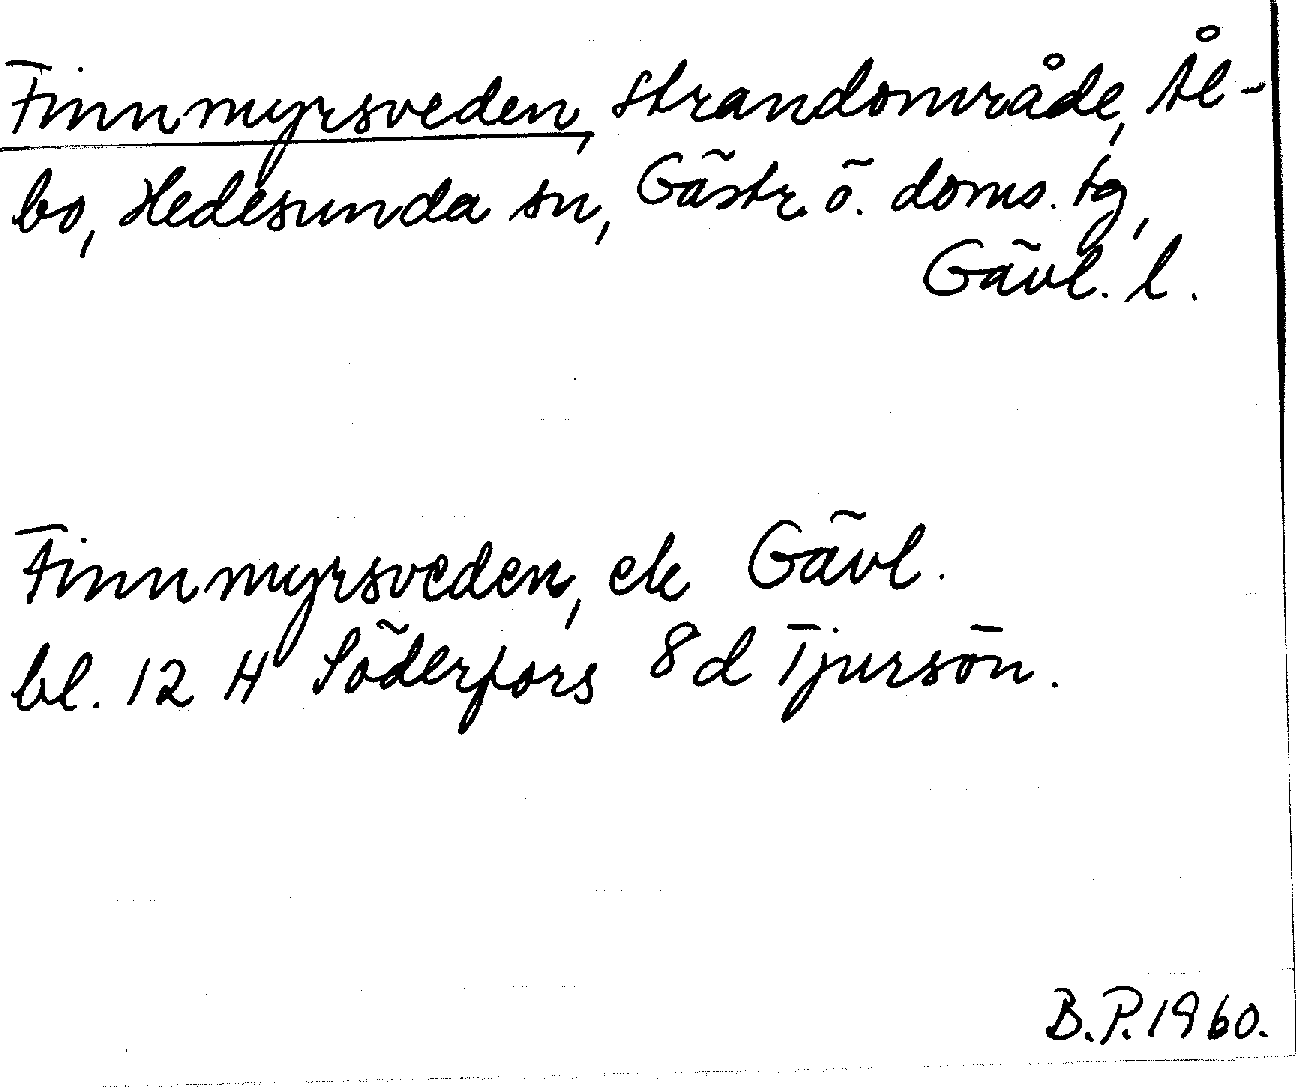 Finnmyrsveden, strandområde, Ål-
bo, Hedesunda sn, Gästr. ö. doms. tg,
Gävl. l.
Finnmyrsveden, ek Gävl.
bl. 12 H Söderfors 8d Tjursön.
B.P. 1960.